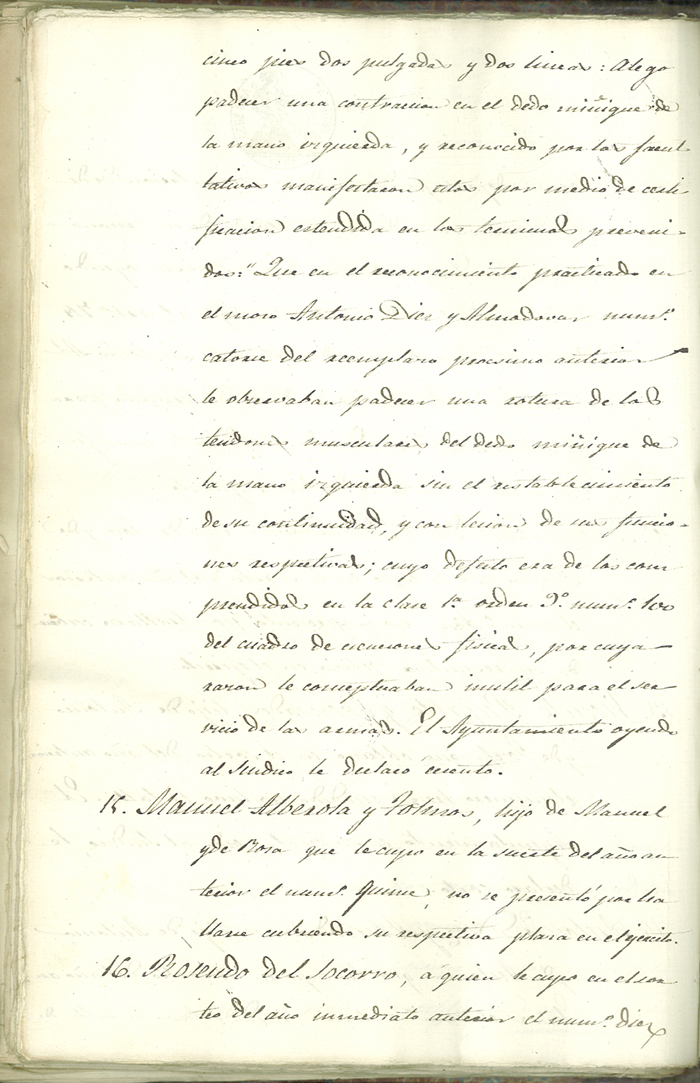 cinco pies dos pulgadas y dos lineas: Alego
padecer una contracion en el dedo miñique de
la mano izquierda, y reconocido por los facul
tativos manifestaron estos por medio de certi
ficacion estendida en los terminos preveni-
dos: "Que en el reconocimiento practicado en
el moso Antonio Diez y Almodovar num.º
catorse del reemplazo procsimo anterior
le observaban padecer una rotura de los
tendones musculares del dedo miñique de
la mano izquierda sin el restablecimiento
de su continuidad, y con lecion de sus funcio-
nes respectivas; cuyo defecto era de los com
prendidos en la clase 1ª orden 9º num.º 100
del cuadro de ecsenciones fisicas, por cuya
razon le conceptuaban inutil para el ser
vicio de las armas. El Ayuntamiento oyendo
al Sindico le declaroecsento.
15. Manuel Alberola y Tolmos, hijo de Manuel
y de Rosa que le cupo en la suerte del año an
terior el num.º Quince, no se presentó por ha
llarse cubriendo su respectiva plaza en el ejercito.
16. Rosendo del Socorro, á quien le cupo en el sor
teo del año inmediato anterior el num.º diez